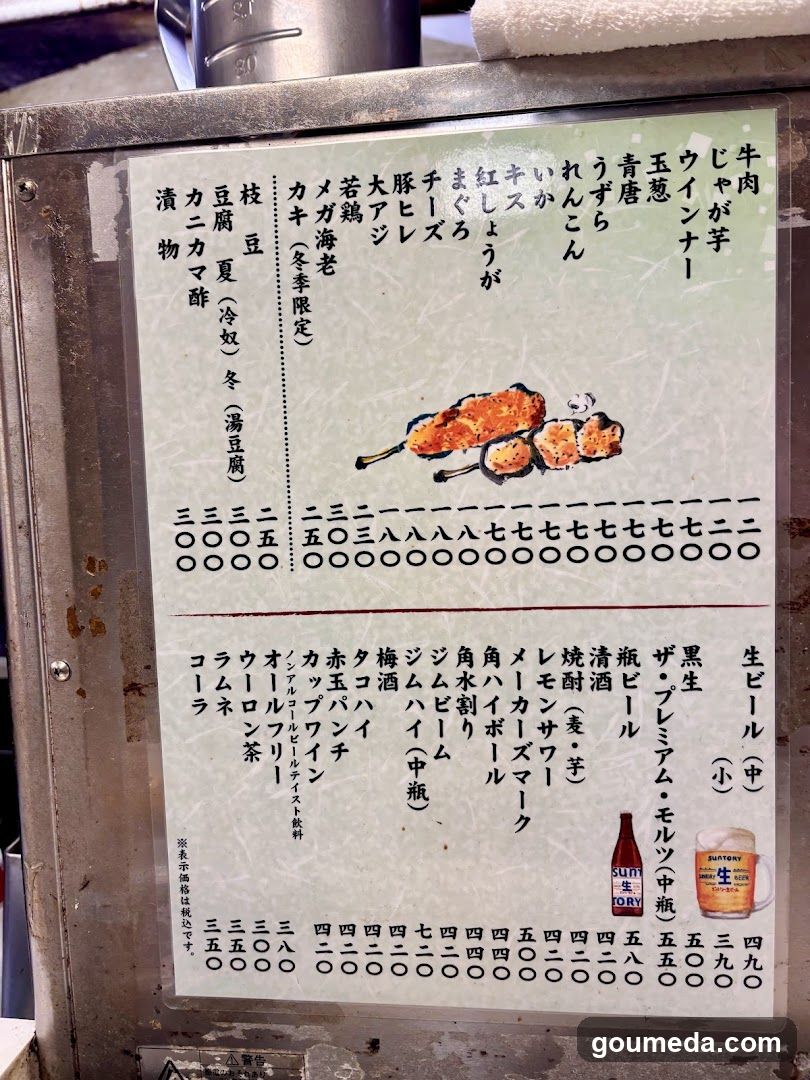 牛肉 一二〇
じゃが芋 一二〇
ウインナー 一七〇
玉葱 一七〇
青唐 一七〇
うずら 一七〇
れんこん 一七〇
いか 一七〇
キス 一七〇
紅しょうが 一七〇
まぐろ 一八〇
チーズ 一八〇
豚ヒレ 一八〇
大アジ 一八〇
若鶏 二三〇
メガ海老 三〇〇
カキ(冬季限定) 二五〇
枝豆 二五〇
豆腐 夏(冷奴) 冬(湯豆腐) 三〇〇
カニカマ酢 三〇〇
漬物 三〇〇
生ビール(中) 四九〇
(小) 三九〇
黒生 五〇〇
ザ・プレミアム・モルツ(中瓶) 五五〇
瓶ビール 五八〇
清酒 四二〇
焼酎(麦・芋) 四二〇
レモンサワー 四二〇
メーカーズマーク 五〇〇
角ハイボール 四四〇
角水割り 四四〇
ジムビーム 四二〇
ジムハイ(中瓶) 七二〇
梅酒 四二〇
タコハイ 四二〇
赤玉パンチ 四二〇
カップワイン 四二〇
ノンアルコールビールテイスト飲料
オールフリー 三八〇
ウーロン茶 三〇〇
ラムネ 三五〇
コーラ 三五〇
※表示価格は税込です。
SUNTORY
生
BEER
SUNT
生
TORY
警告
goumeda.com